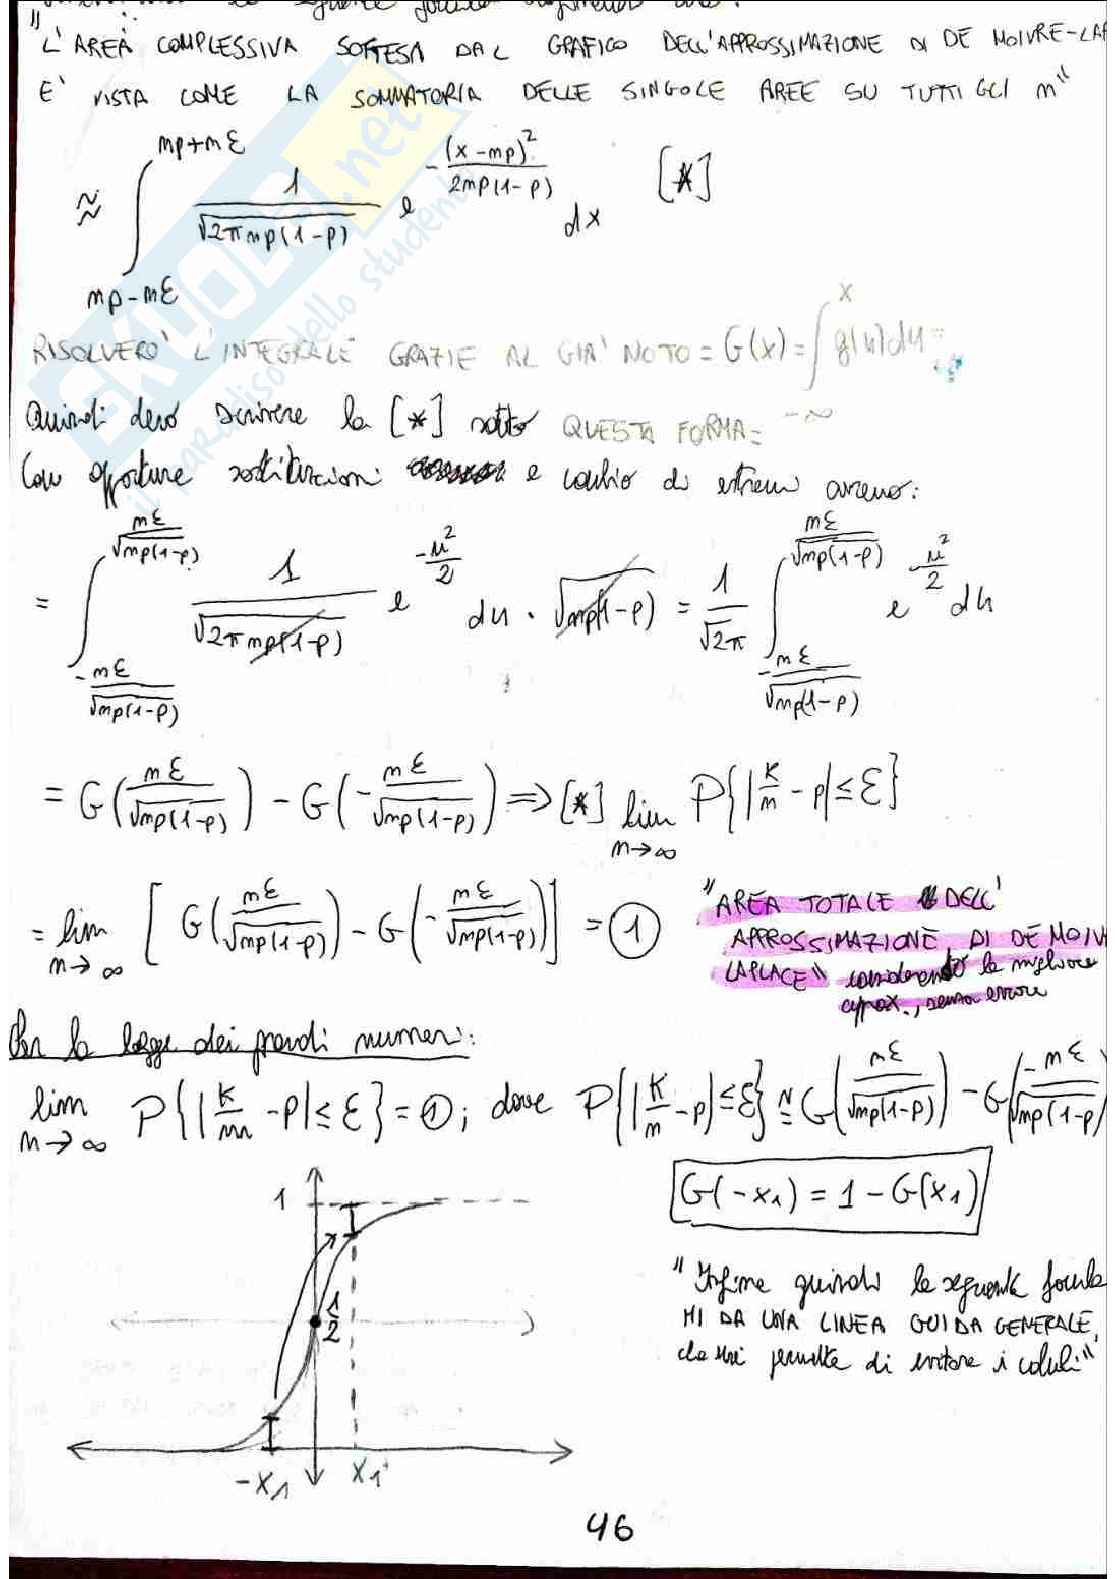 "L'AREA COMPLESSIVA SOTTESA DAL GRAFICO DELL'APPROSSIMAZIONE DI DE MOIVRE-LAP
E' VISTA COME LA SOMMATORIA DELLE SINGOLE AREE SU TUTTI GLI m"
≈ ∫_{mp-mε}^{mp+mε} 1/√(2πmp(1-p)) e^{-(x-mp)²/(2mp(1-p))} dx [*]
RISOLVERO' L'INTEGRALE GRAZIE AL GIA' NOTO = G(x) = ∫_{-∞}^{x} g(u)du =
Quindi devo scrivere la [*] sotto QUESTA FORMA =
Con opportune sostituzioni e cambio di estremi avremo:
= ∫_{-mε/√(mp(1-p))}^{mε/√(mp(1-p))} 1/√(2πmp(1-p)) e^{-u²/2} du · √(mp(1-p)) = 1/√2π ∫_{-mε/√(mp(1-p))}^{mε/√(mp(1-p))} e^{-u²/2} du
= G(mε/√(mp(1-p))) - G(-mε/√(mp(1-p))) ⇒ [*] lim_{m→∞} P{|k/m - p| ≤ ε}
= lim_{m→∞} [G(mε/√(mp(1-p))) - G(-mε/√(mp(1-p)))] = 1
"AREA TOTALE DELL'
APPROSSIMAZIONE DI DE MOIV
LAPLACE" considerando la migliore
approx., senza errore
Per la legge dei grandi numeri:
lim_{m→∞} P{|k/m - p| ≤ ε} = 1; dove P{|k/m - p| ≤ ε} ≃ G(mε/√(mp(1-p))) - G(-mε/√(mp(1-p))
G(-x₁) = 1 - G(x₁)
1
1/2
-x₁
x₁
"Infine quindi la seguente formula
MI DA UNA LINEA GUIDA GENERALE,
che mi permette di evitare i calcoli"
46
SKUOLA.net
il paradiso dello studente